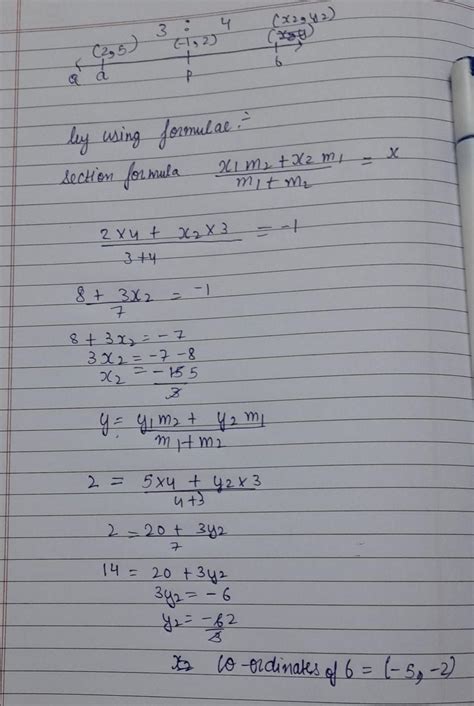 3 : 4 (x2, y2)
(2,5) (-1,2)
Q a P b
by using formulae :-
section formula x1 m2 + x2 m1 / m1 + m2 = x
2 × 4 + x2 × 3 / 3+4 = -1
8 + 3x2 / 7 = -1
8 + 3x2 = -7
3x2 = -7 -8
x2 = -15 5 / 3
y = y1 m2 + y2 m1 / m1 + m2
2 = 5×4 + y2 × 3 / 4+3
2 = 20 + 3y2 / 7
14 = 20 + 3y2
3y2 = -6
y2 = -6 2 / 3
x2 co-ordinates of b = (-5, -2)